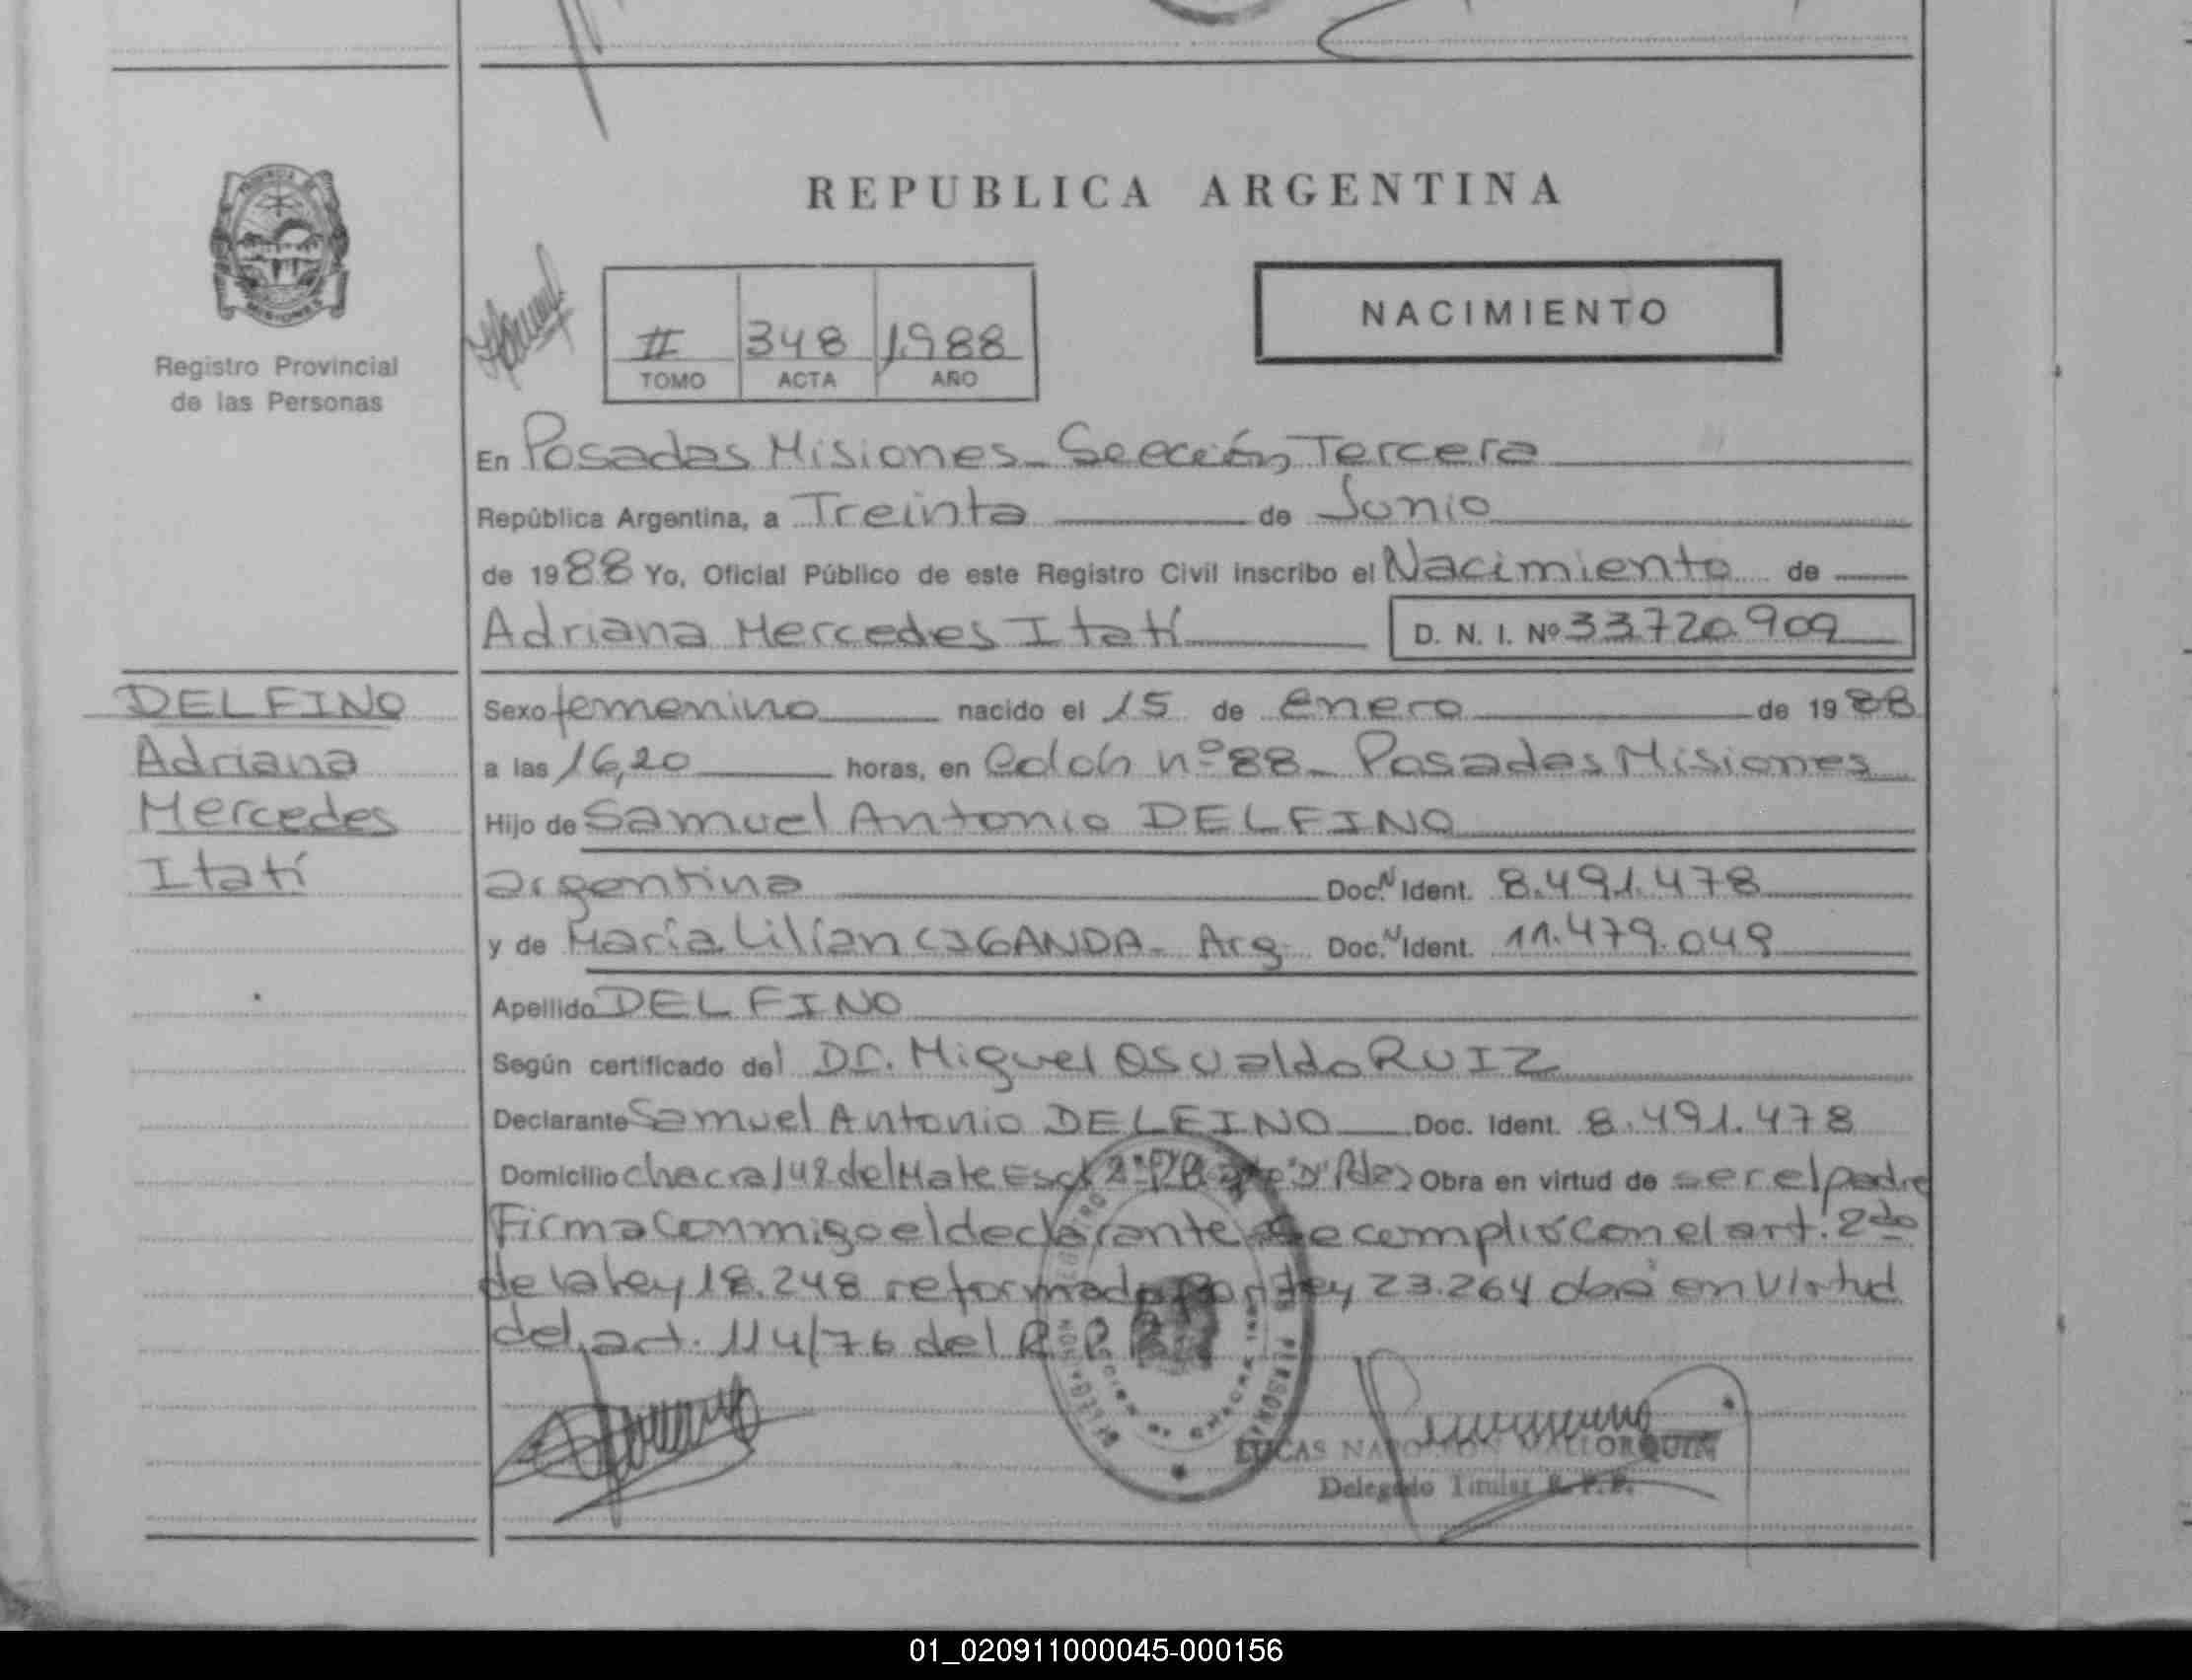 REPUBLICA ARGENTINA
Registro Provincial
de las Personas
II 348 1988
TOMO ACTA AÑO
NACIMIENTO
En Posadas Misiones - Sección Tercera
República Argentina, a Treinta de Junio
de 1988 Yo, Oficial Público de este Registro Civil inscribo el Nacimiento de
Adriana Mercedes Itatí D. N. I. Nº 33.720.909
DELFINO
Adriana
Mercedes
Itatí
Sexo femenino nacido el 15 de enero de 1988
a las 16,20 horas, en Colón nº 88 - Posadas Misiones
Hijo de Samuel Antonio DELFINO
argentina Doc. N Ident. 8.491.478
y de María Lilian CIGANDA - Arg. Doc. N Ident. 11.479.049
Apellido DELFINO
Según certificado del Dr. Miguel Osvaldo RUIZ
Declarante Samuel Antonio DELFINO Doc. Ident. 8.491.478
Domicilio chacra 149 del Mate Esc 2º Obra en virtud de ser el padre
Firma conmigo el declarante Se complió con el art. 2do
de la ley 18.248 reformada por ley 23.264 en virtud
del art. 114/76 del R. P. P.
LUCAS NAPOLEON MALLORQUIN
Delegado Titular R. P. P.
01_020911000045-000156